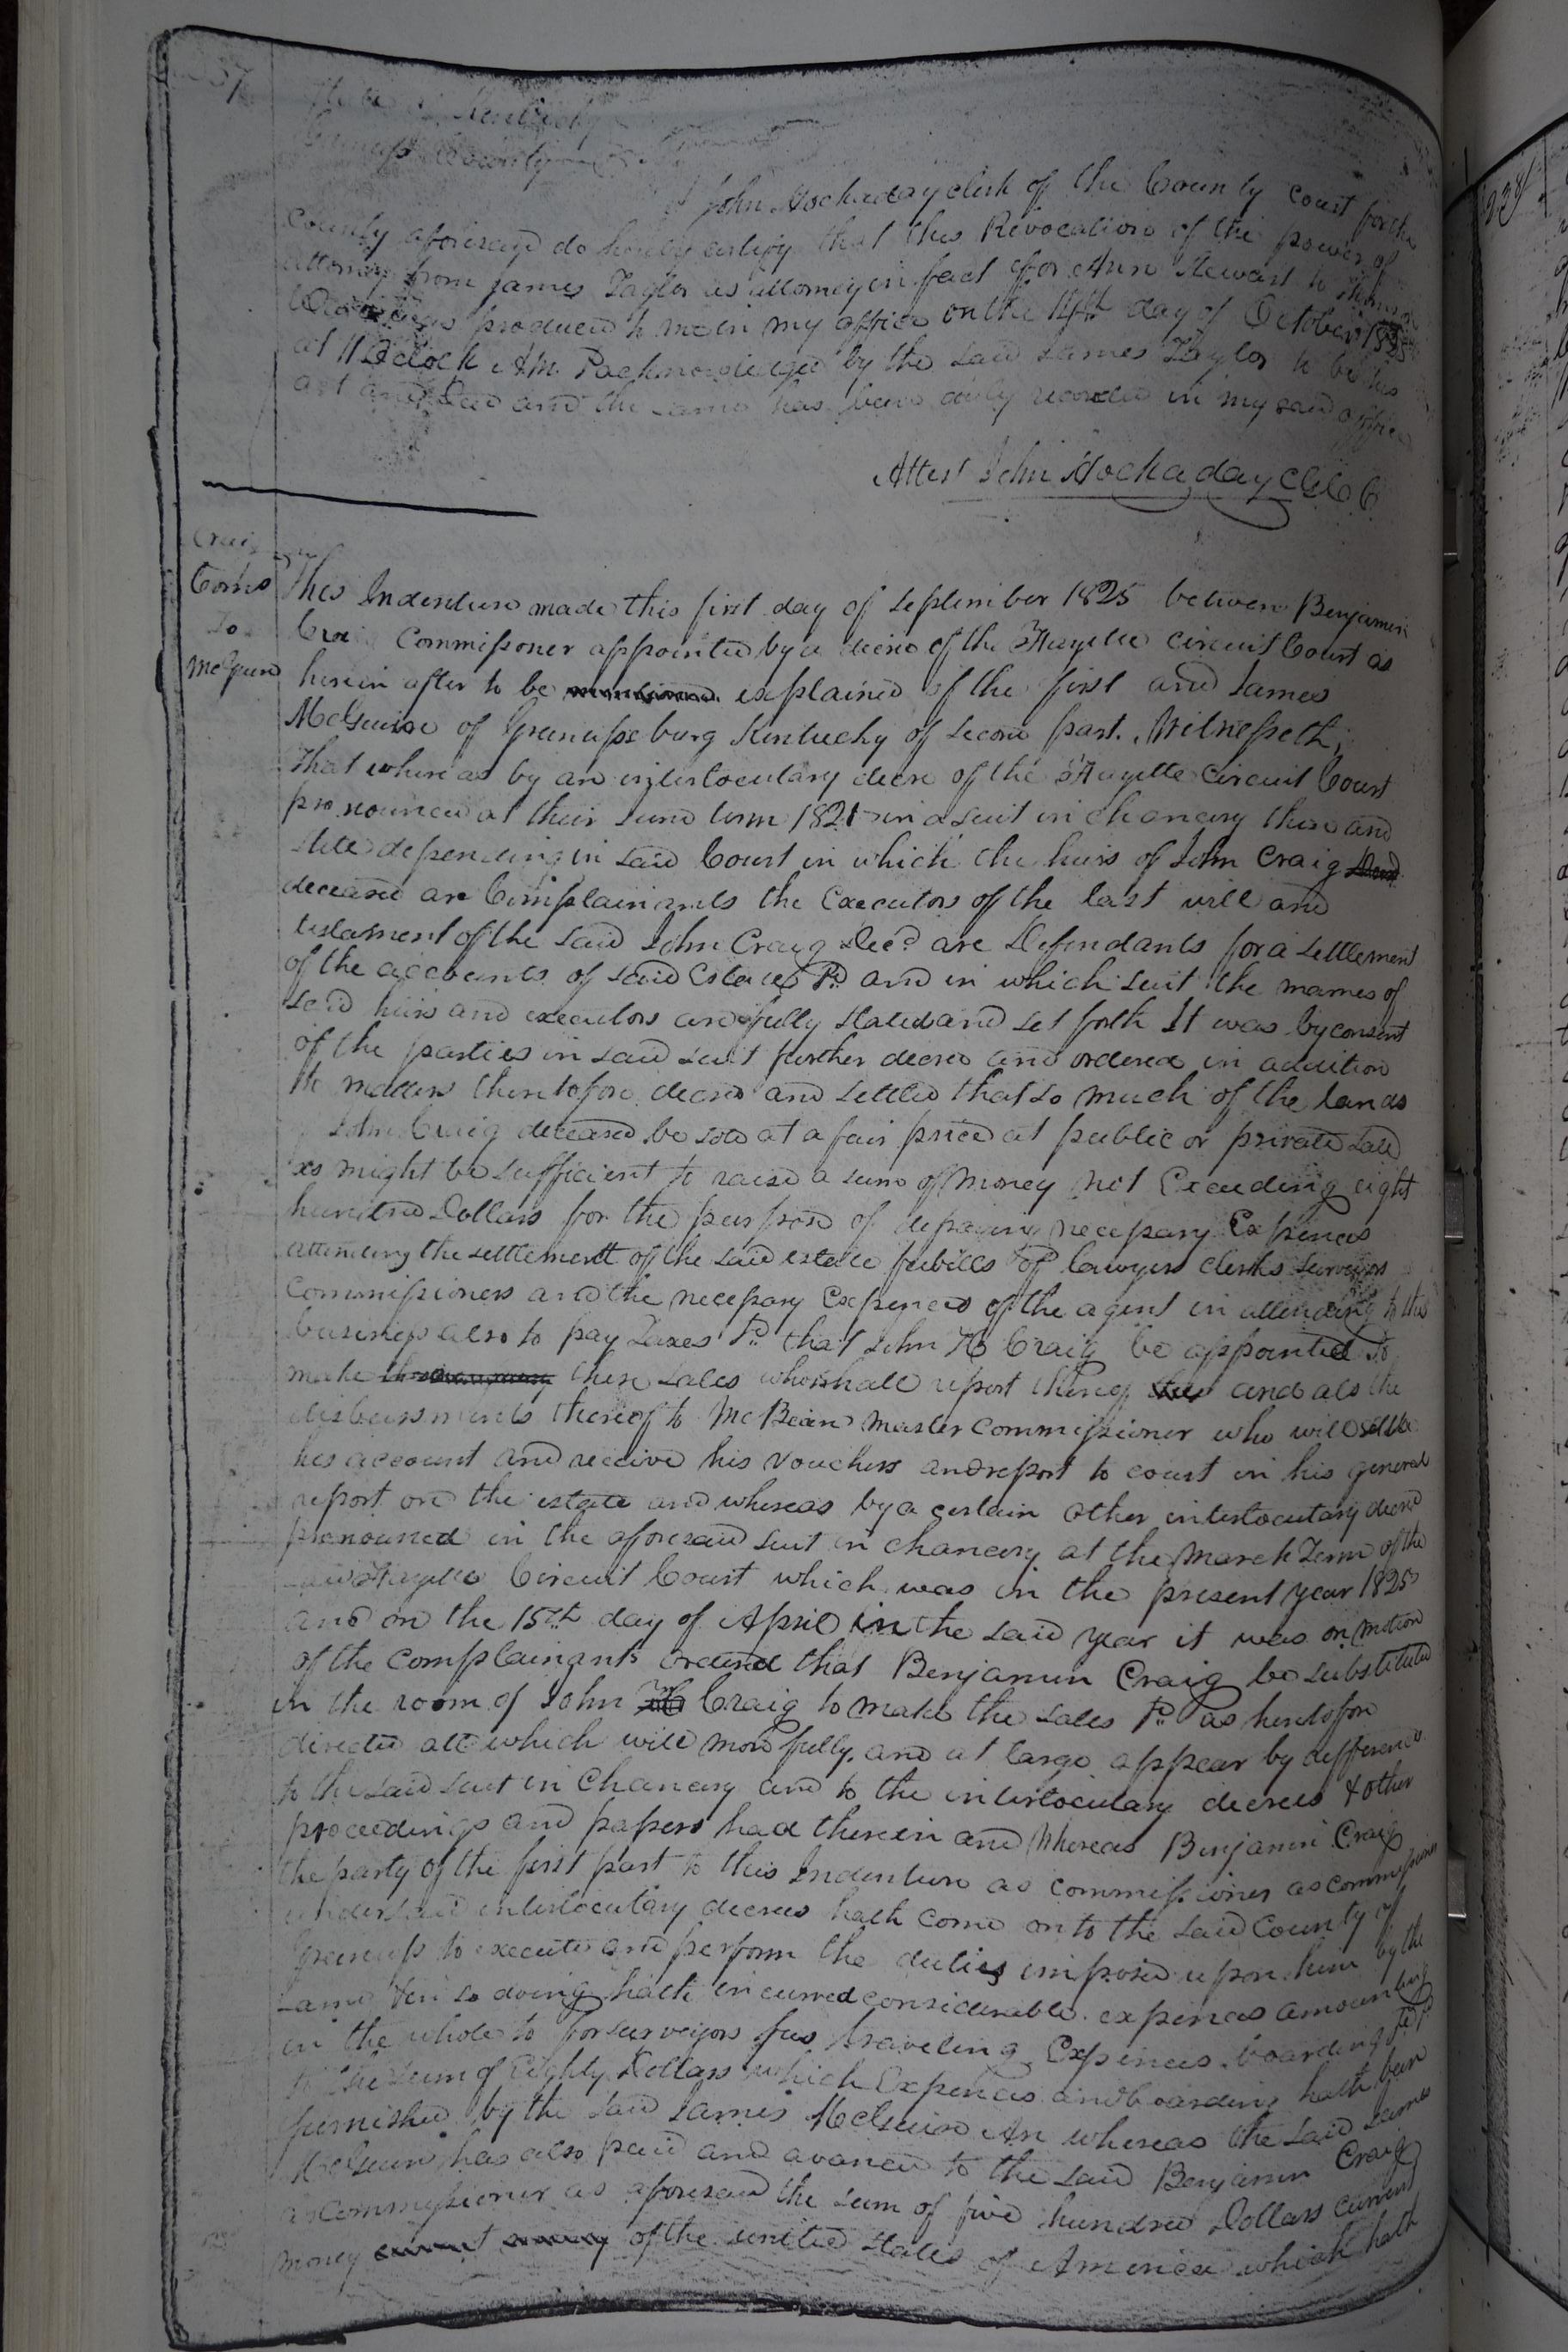 37
State of Kentucky
Greenup County
I John Hockaday clerk of the County court for the
County aforesaid do hereby certify that this Revocation of the power of
attorney from James Taylor as attorney in fact for Ann Stewart to
was produced to me in my office on the 14th day of October 1825
at 11 Oclock AM. & acknowledged by the said James Taylor to be his
act and deed and the same has been duly recorded in my said office
Attest John Hockaday CGCC
Craig
Coms
To
McGuire
This Indenture made this first day of September 1825 between Benjamin
Craig Commissioner appointed by a decree of the Fayette circuit Court as
herein after to be explained of the first and James
McGuire of Greenupsburg Kentucky of second part. Witnesseth,
That where as by an interlocutary decre of the Fayette Circuit Court
pronounced at their June term 1821 in a suit in chancery there and
still depending in said Court in which the heirs of John Craig
deceased are Complainants the Executors of the last will and
testament of the said John Craig Decd are Defendants for a settlement
of the accounts of said Estate &c and in which suit the names of
said heirs and executors are fully stated and set forth It was by consent
of the parties in said suit further decreed and ordered in addition
to matters theretofore decred and settled that so much of the lands
John Craig deceased be sold at a fair price at public or private sale
as might be sufficient to raise a sum of money not Exceeding eight
hundred Dollars for the purpose of defraying necessary Expences
attending the settlement of the said estate feebills of lawyers clerks surveyors
Commissioners and the necessary Expences of the agent in attending to this
business also to pay Taxes &c that John H Craig be appointed to
make these sales who shall report thereof and als the
disbursments thereof to McBean Master Commissioner who will settle
his account and receive his vouchers and report to court in his general
report on the estate and whereas by a certain other interlocutary decree
pronounced in the aforesaid suit in chancery at the March Term of the
said Fayette Circuit Court which was in the present year 1825
and on the 15th day of April in the said year it was on motion
of the complainants ordered that Benjamin Craig be substituted
in the room of John H Craig to make the sales &c as heretofore
directed all which will more fully and at large appear by difference
to the said suit in Chancery and to the interlocutary decrees & other
proceedings and papers had therein and Whereas Benjamin Craig
the party of the first part to this Indenture as commissioner as commissioner
under said interlocutary decrees hath come on to the said County of
Greenup to execute and perform the duties imposed upon him by the
same & in so doing hath incurred considerable expences amounting
in the whole to for surveyors fees traveling Expences boarding &c &c
to the sum of Eighty Dollars which Expences and boarding hath been
furnished by the said James McGuire An whereas the said James
McGuire has also paid and avanced to the said Benjamin Craig
as Commissioner as aforesaid the sum of five hundred Dollars current
money of the united states of America which hath